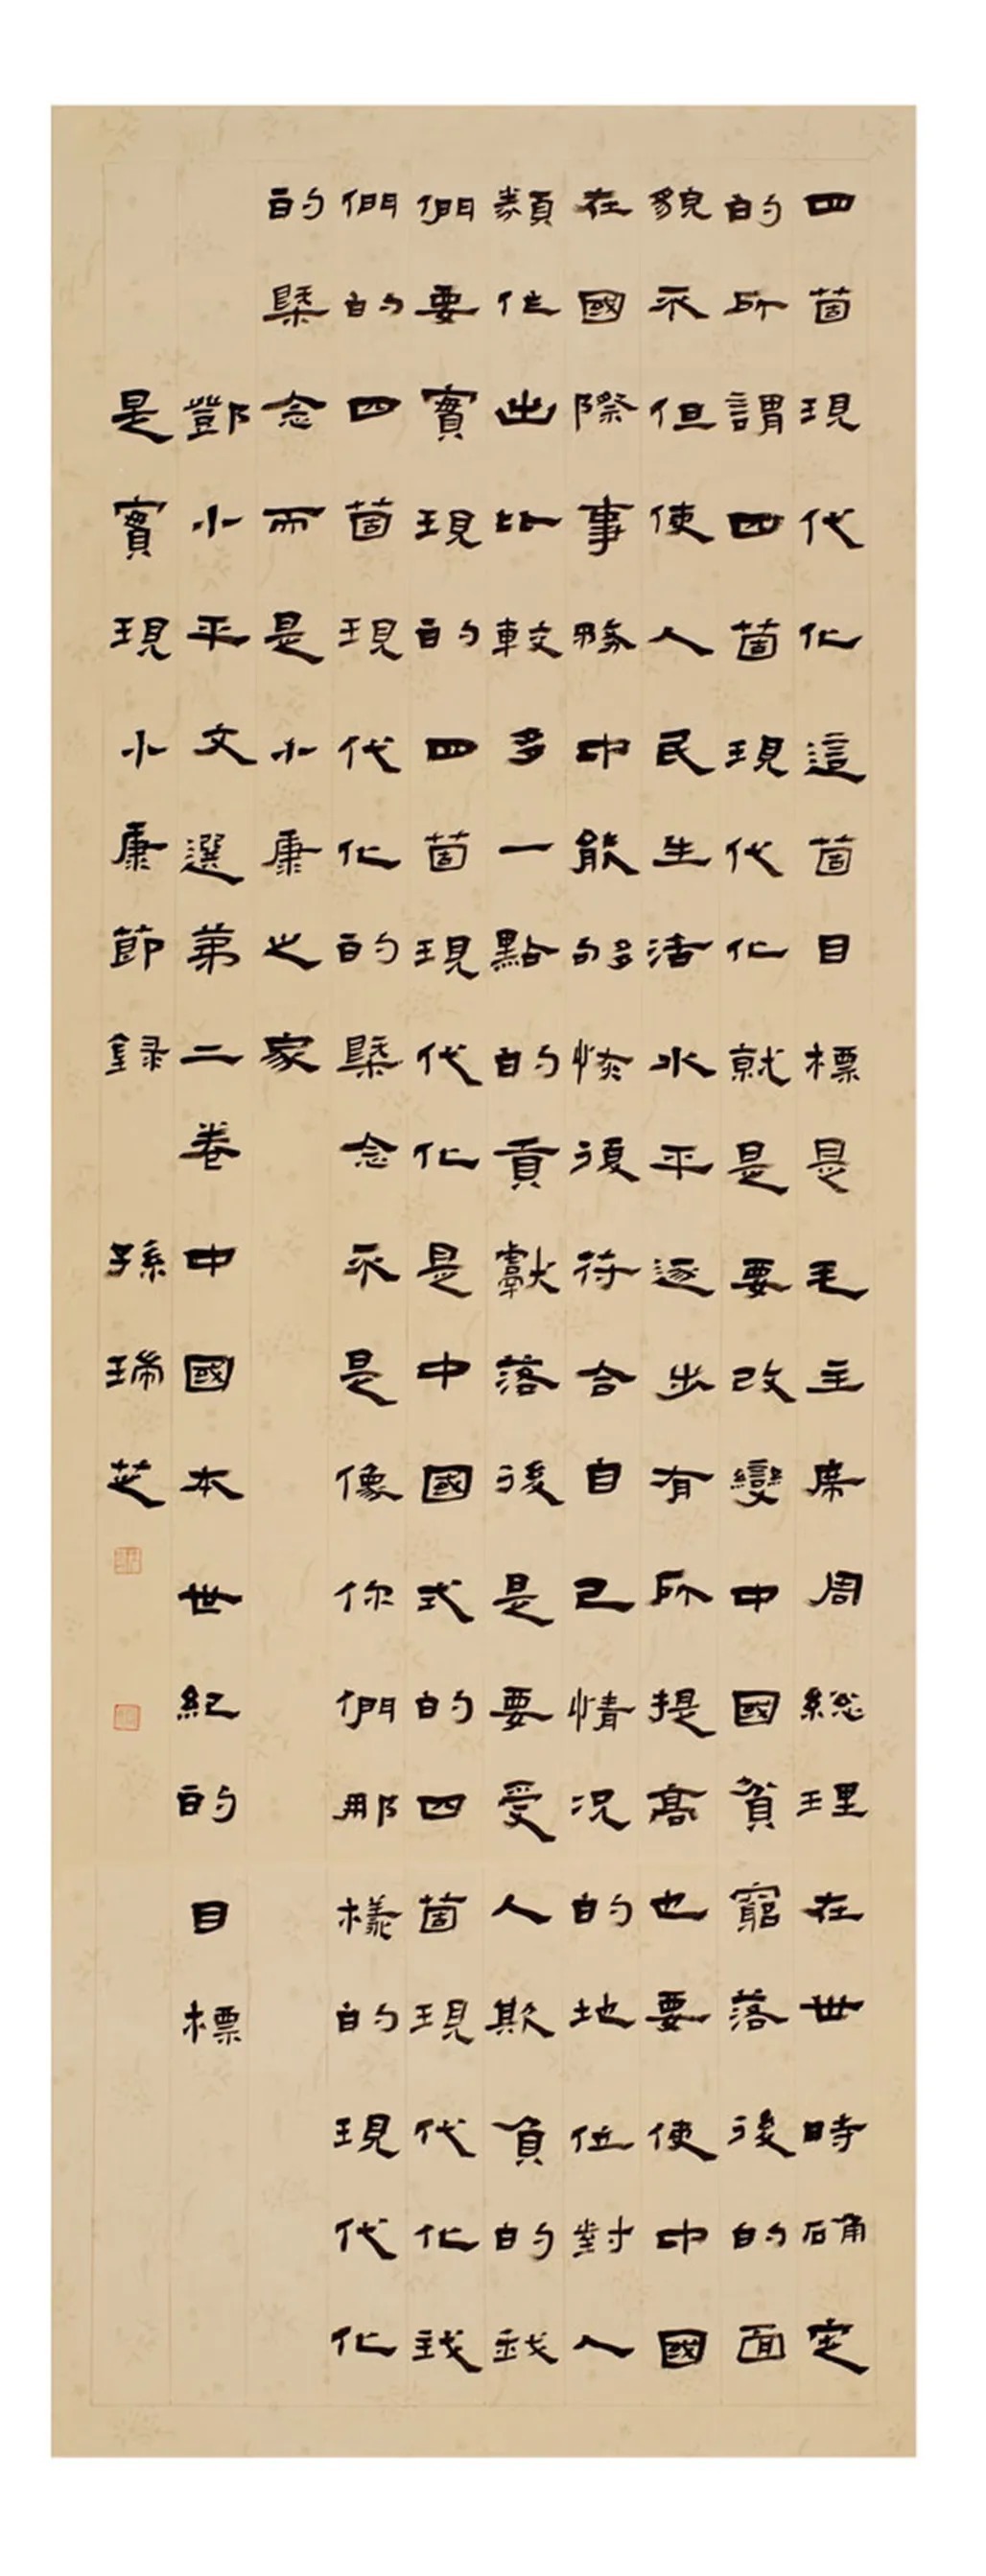 四箇現代化這箇目標是毛主席周総理在世時确定
的所謂四箇現代化就是要改變中國貧窮落後的面
貌不但使人民生活水平逐步有所提高也要使中國
在國際事務中能够恢復符合自己情況的地位對人
類作出比較多一點的貢獻落後是要受人欺負的我
們要實現的四箇現代化是中國式的四箇現代化我
們的四箇現代化的槩念不是像你們那樣的現代化
的槩念而是小康之家
鄧小平文選第二卷 中國本世紀的目標
是實現小康節録 孫瑞芝